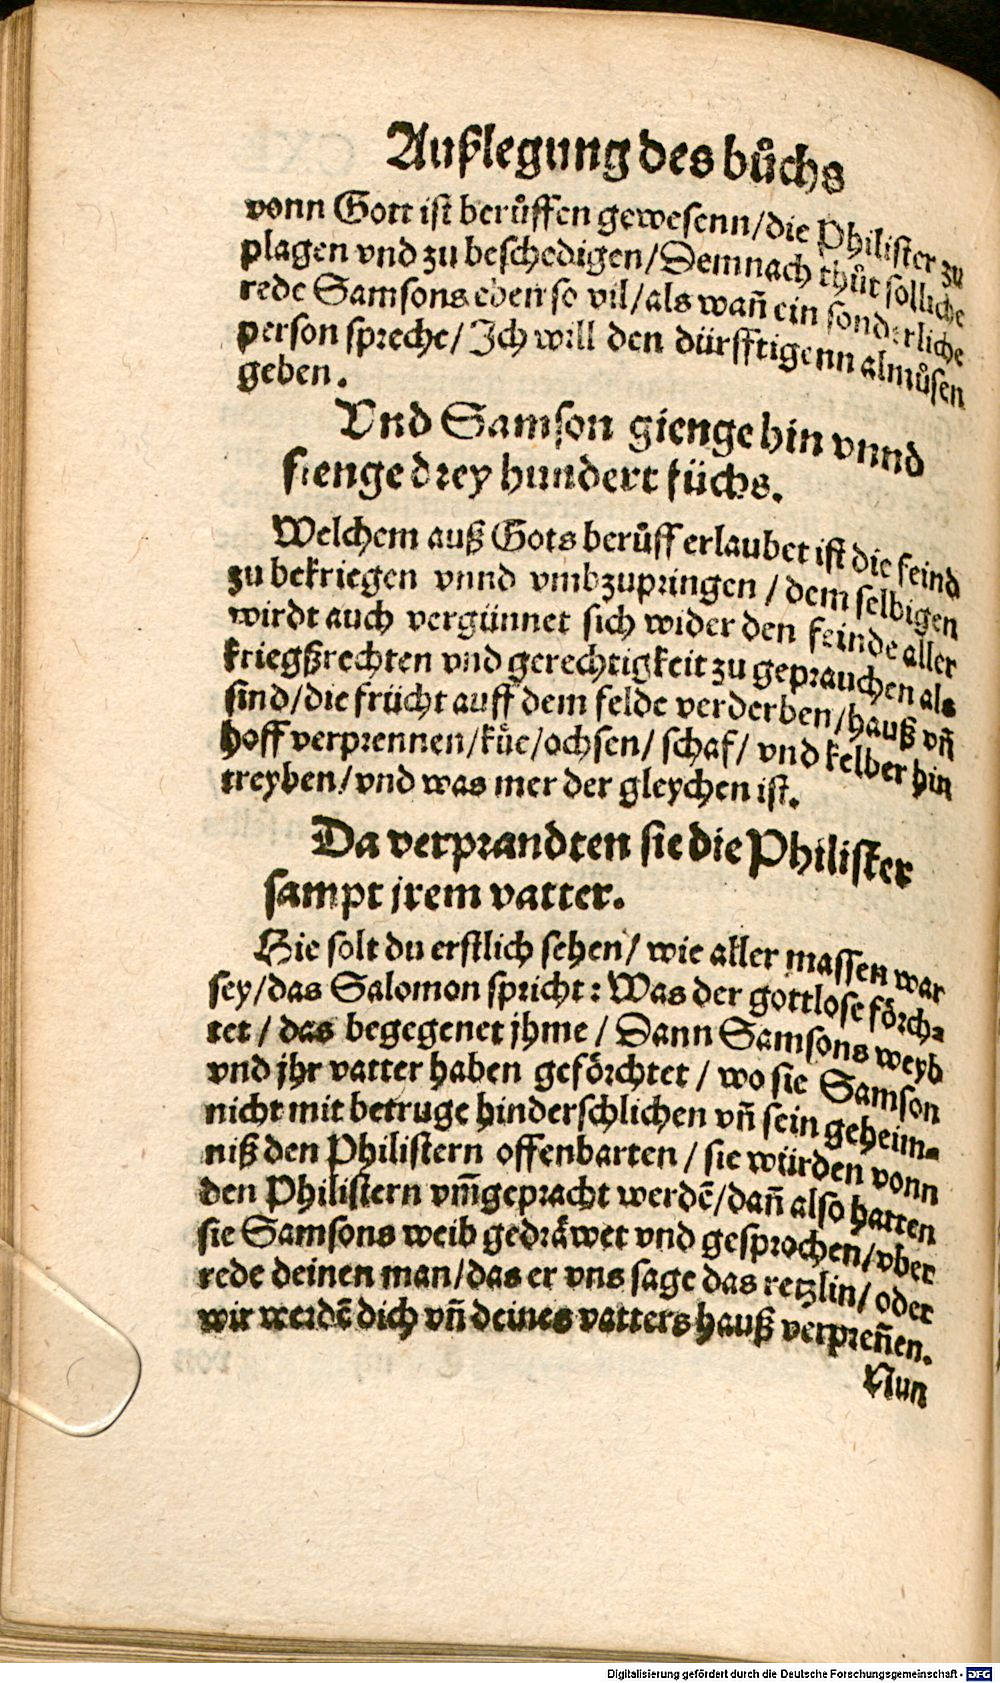 Außlegung des bůchs
vonn Gott ist berůffen gewesenn/die Philister zu
plagen vnd zu beschedigen/Demnach thůt solliche
rede Samsons eben so vil/als wañ ein sonderliche
person spreche/Ich will den dürfftigenn almůsen
geben.
Vnd Samson gienge hin vnnd
fienge drey hundert füchs.
Welchem auß Gots berůff erlaubet ist die feind
zu bekriegen vnnd vmbzupringen/dem selbigen
wirdt auch vergünnet sich wider den feinde aller
kriegßrechten vnd gerechtigkeit zu geprauchen als
sind/die frücht auff dem felde verderben/hauß vñ
hoff verprennen/kůe/ochsen/schaf/vnd kelber hin
treyben/vnd was mer der gleychen ist.
Da verprandten sie die Philister
sampt jrem vatter.
Hie solt du erstlich sehen/wie aller massen war
sey/das Salomon spricht: Was der gottlose förch-
tet/das begegenet jhme/Dann Samsons weyb
vnd jhr vatter haben geförchtet/wo sie Samson
nicht mit betruge hinderschlichen vñ sein geheim-
niß den Philistern offenbarten/sie würden vonn
den Philistern vm̃gepracht werdẽ/dañ also hatten
sie Samsons weib gedräwet vnd gesprochen/vber
rede deinen man/das er vns sage das retzlin/oder
wir werdẽ dich vñ deines vatters hauß verpreñen.
Nun
Digitalisierung gefördert durch die Deutsche Forschungsgemeinschaft - DFG